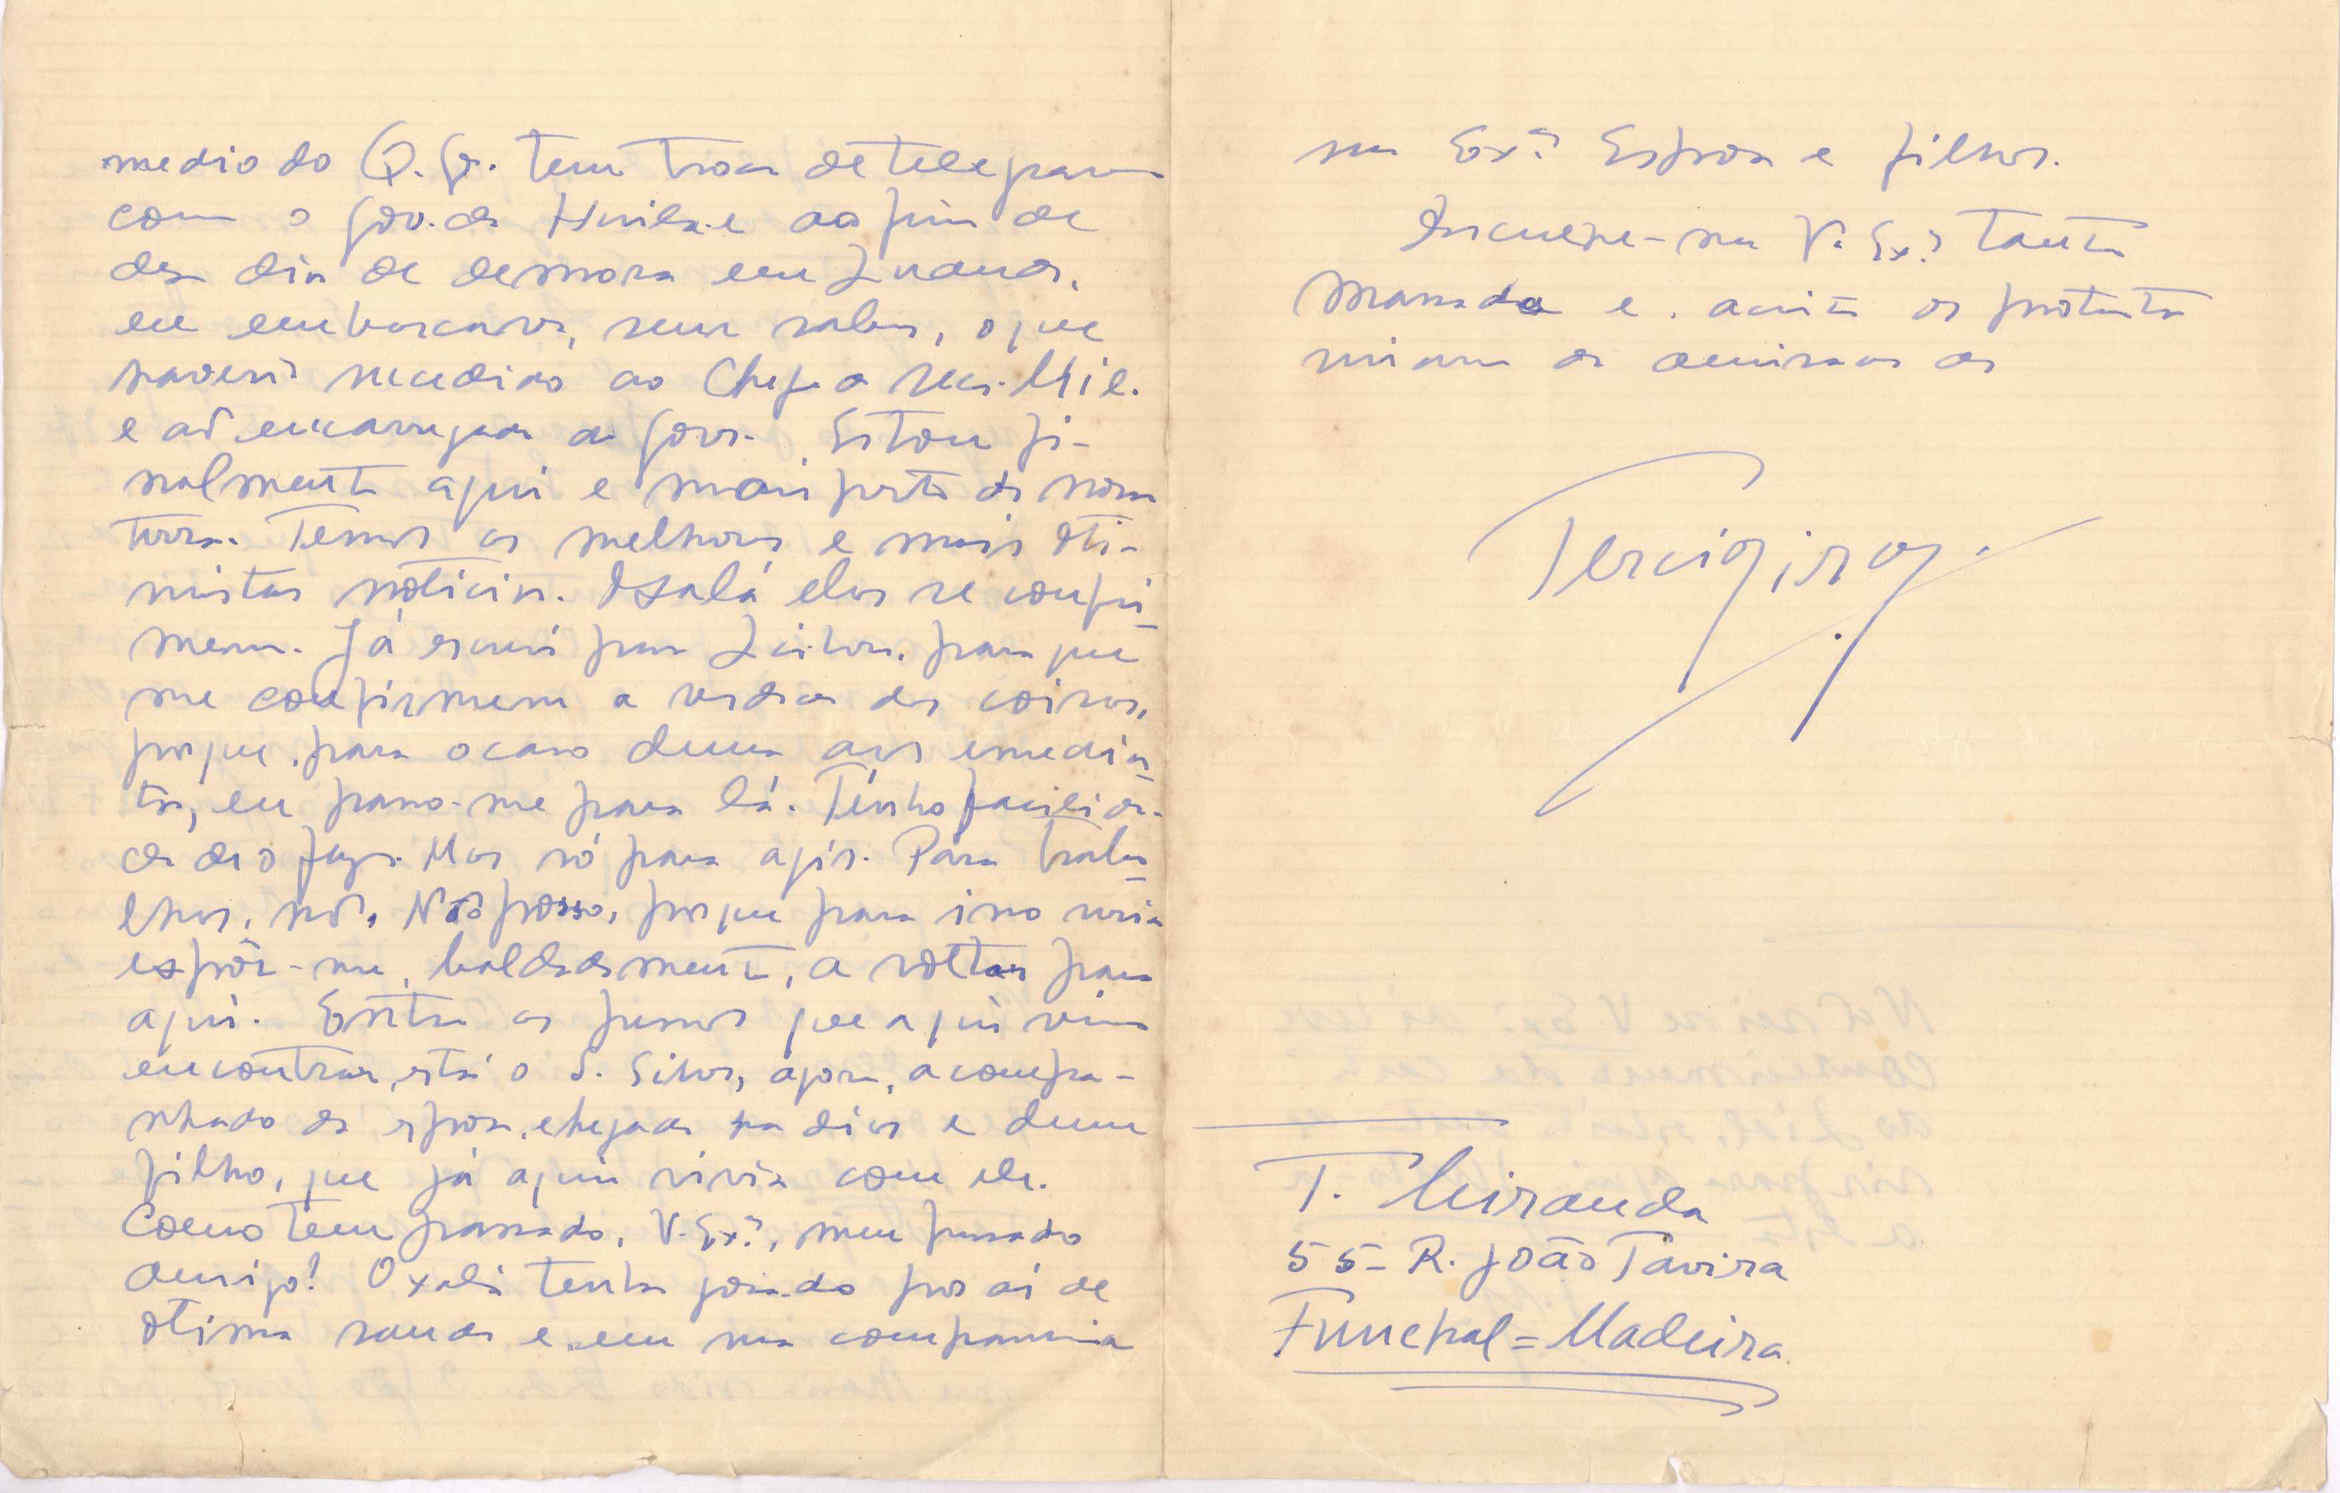 medio do Q. G. tem troca de telegrama
com o Gov. da Huila e ao fim de
dia de demora em Luanda,
eu embarcava, sem saber, o que
haveria sucedido ao Chefe a Rec. Mil.
e ao encarregado do Gov. Estou fi-
nalmente aqui e mais perto da nossa
terra. Temos as melhores e mais oti-
mistas noticias. Oxalá elas se confir-
mem. Já escrevi para Lisboa, para que
me confirmem a verdade das coisas,
porque, para o caso duma imedia-
ta, eu passo-me para lá. Tenho facilida-
de de o fazer. Mas só para agir. Para traba-
lhos, não. Não posso, porque para isso seria
expôr-me, baldadamente, a voltar para
aqui. Entre os presos que aqui vim
encontrar, está o S. Silva, agora, acompa-
nhado da esposa, chegada ha dias e dum
filho, que já aqui vivia com ele.
Como tem passado, V. Exª, meu presado
amigo? Oxalá tenha gosado por aí de
otima saude e em sua companhia
sua Exª Esposa e filhos.
Desculpe-me V. Exª tanta
massada e aceite os protestos
da amisade do
T. Miranda
55- R. João Tavira
Funchal = Madeira